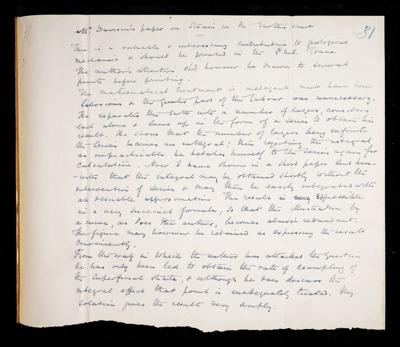 81
Mr Davison's paper on Strain in the Earth's crust
This is a valuable & interesting contribution to geological
mechanics & should be printed in the Phil. Trans.
The author's attention should however be drawn to several
points before printing.
The mathematical treatment is inelegant, must have been
laborious & the greater part of the labour was unnecessary.
He separates the Earth into a number of layers, considers
each alone & sums up in the form of a series to obtain his
result. He shows that the number of layers being infinite
the series becomes an integral; then regarding the integral
as impracticable he betakes himself to the series again for
calculation. Now I have shown in a short paper
with that the integral may be obtained shortly without the
intervention of series & may then be easily integrated with
all desirable approximation. The result is expressible
in a very succinct formula, so that the illustration by
a curve, as does the author, becomes almost redundant.
The figure may however be retained as expressing the result
conveniently.
From the way in which the author has attacked the question
he has only been led to obtain the rate of crumpling of
the superficial strata, & although he does discuss the
integral effect that point is inadequately treated. My
solution gives the result very simply.